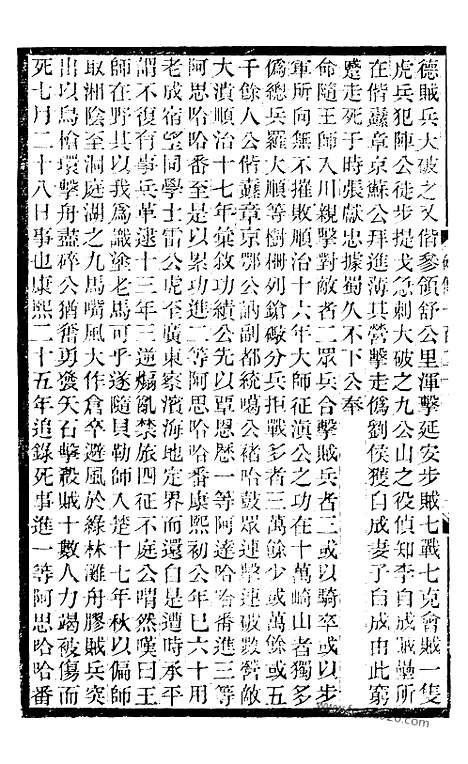 德賊兵大破之又偕參領舒公里渾擊延安步賊七戰七克會賊一隻
虎兵犯陣公徒步提戈急刺大破之九公山之役偵知李自成賊壘所
在偕纛章京蘇公拜進薄其營擊走僞劉侯獲自成妻子自成由此窮
蹙走死于時張獻忠據蜀久不下公奉
命隨王師入川親擊對敵者二眾兵合擊賊兵者三或以騎卒或以
軍所向無不摧敗順治十六年大師征滇公之功在十萬嶠山者獨多
僞總兵羅大順等樹柵列鎗礮分兵拒戰多者三萬餘少或萬餘或五
千餘人公偕纛章京鄂公訥副都統噶公褚哈鼓眾連擊連破數營敵
大潰順治十七年彙敘功績公先以覃恩歷一等阿達哈哈番進三等
阿思哈哈番至是以累功進二等阿思哈哈番康熙初公年已六十用
老成宿望同學士雷公虎至廣東察濱海地定界而還自是遭時承平
謂不復有事兵革逮十三年三逆煽亂禁旅四征不庭公喟然嘆曰王
師在野其以我爲識塗老馬可乎遂隨貝勒師入楚十七年秋以偏師
取湘陰至洞庭湖之九馬嘴風大作倉卒避風於綠林灘舟膠賊兵突
出以鳥槍環擊舟盡碎公猶奮勇獲矢石擊殺賊十數人力竭被傷而
死七月二十八日事也康熙二十五年追錄死事進一等阿思哈哈番